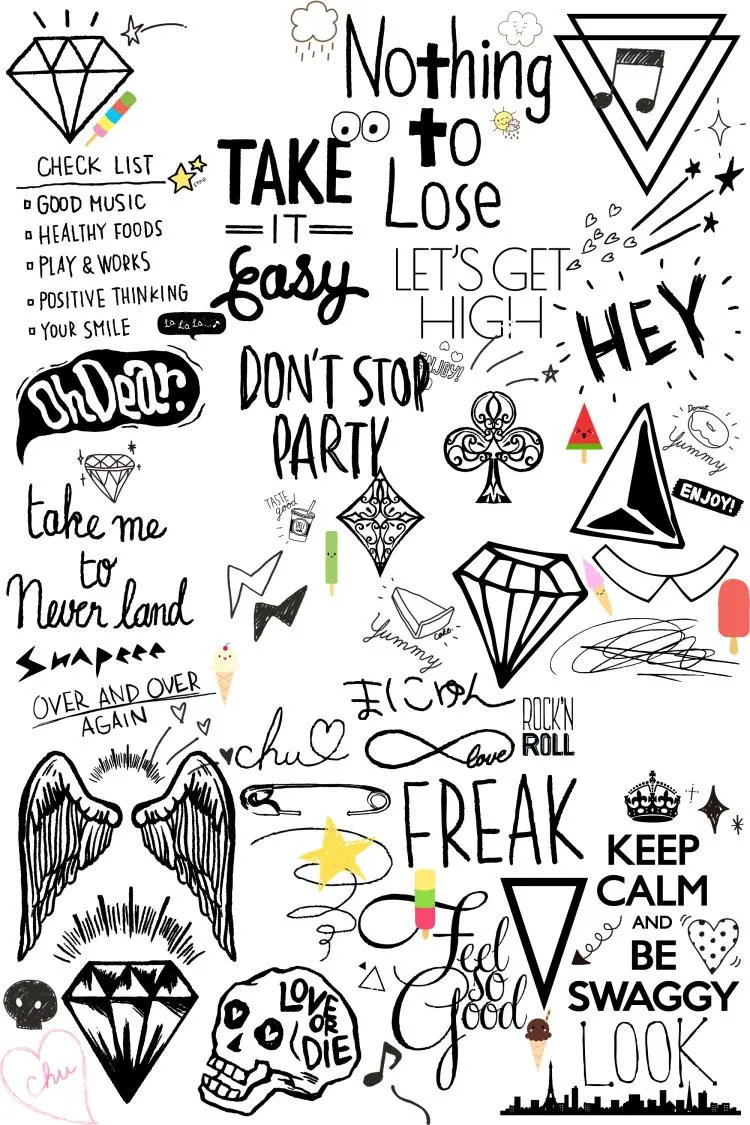 Nothing
to
Lose
CHECK LIST
GOOD MUSIC
HEALTHY FOODS
PLAY & WORKS
POSITIVE THINKING
YOUR SMILE
la la la...♪
TAKE
IT
Easy
LET'S GET
HIGH
HEY
Oh Dear.
DON'T STOP
PARTY
ENJOY!
Donut
yummy
ENJOY!
TASTE
good
take me
to
Never land
cake
yummy
OVER AND OVER
AGAIN
まにゅん
ROCK'N
ROLL
chu♡
love
FREAK
KEEP
CALM
AND
BE
SWAGGY
Feel
so
Good
LOVE
OR
DIE
LOOK
chu